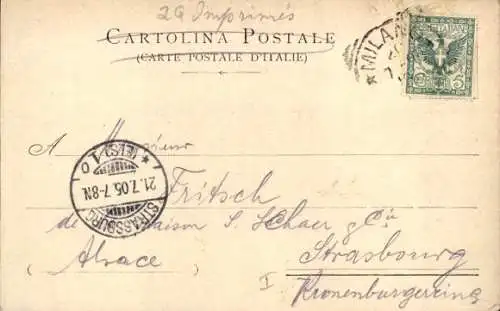 29 Imprimés
CARTOLINA POSTALE
(CARTE POSTALE D'ITALIE)
MILANO
A Monsieur
Fritsch
de la Maison S. Schaer & Cie
Strasbourg
(Alsace)
I Kronenburgerring
STRASSBURG
21.7.05.7-8N.
* (ELS) 1 o